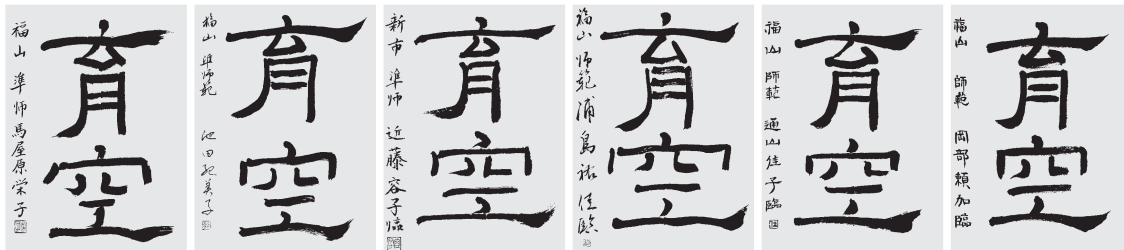 育空
福山 準師 馬屋原栄子
育空
福山 準師範 池田紀美子
育空
新市 準師 近藤容子臨
育空
福山 師範 浦島祐佳臨
育空
福山 師範 通山佳子臨
育空
福山 師範 岡部頼加臨